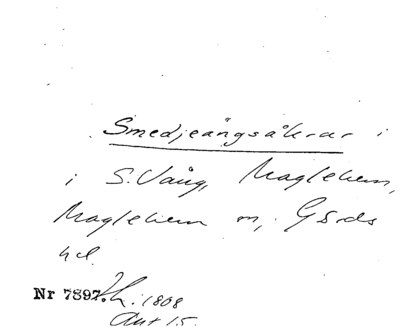 Smedjeängsåkrar i
i S. Vång, Maglehem,
Maglehem sn, Gärds
hd.
Nr 7897. 1808
Akt 15.